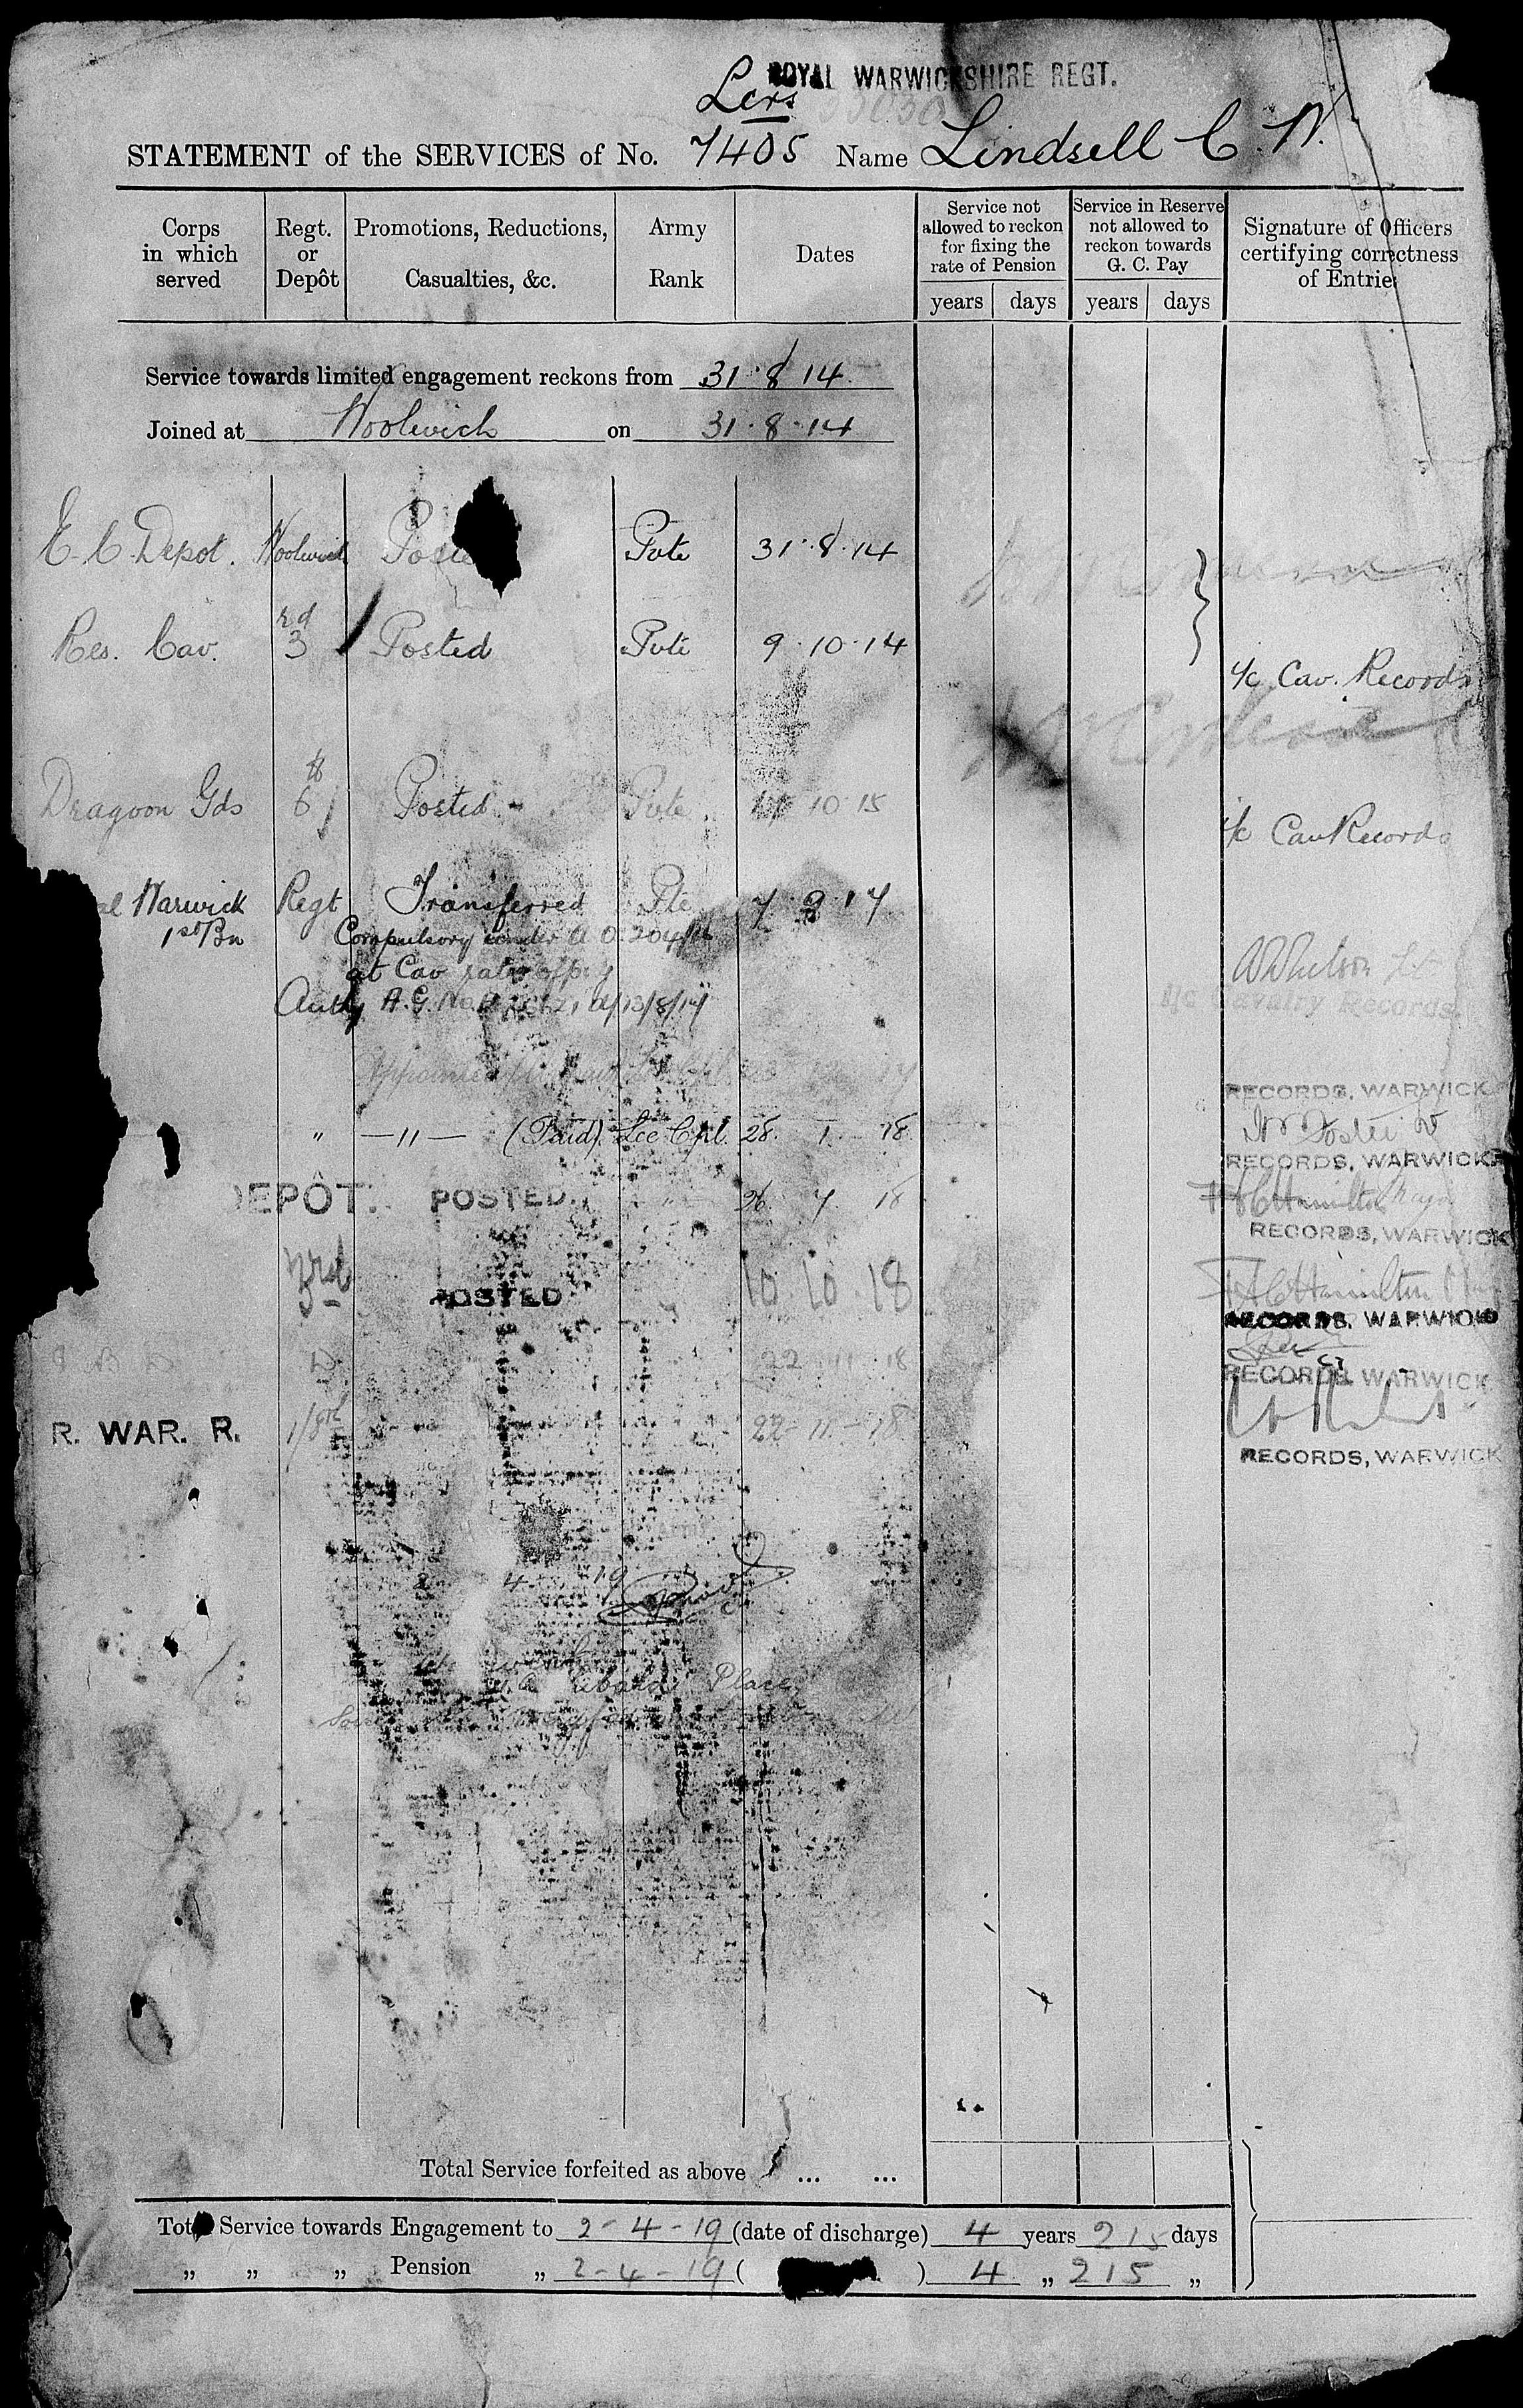 ROYAL WARWICKSHIRE REGT.
Lcrs
STATEMENT of the SERVICES of No. 7405 Name Lindsell C. W.
Corps in which served
Regt. or Depôt
Promotions, Reductions, Casualties, &c.
Army Rank
Dates
Service not allowed to reckon for fixing the rate of Pension
years days
Service in Reserve not allowed to reckon towards G. C. Pay
years days
Signature of Officers certifying correctness of Entries
Service towards limited engagement reckons from 31·8·14
Joined at Woolwich on 31·8·14
E. C. Depot. Woolwich Poste Pvte 31·8·14
Res. Cav. 3rd Posted Pvte 9·10·14
i/c Cav. Records
Dragoon Gds 6th Posted Pvte 10·15
i/c Cav Records
al Warwick Regt Transferred Pte 7·9·17
1st Bn Compulsory under A.O. 204/16
at Cav rate of pay
Auth A.G. 13/8/17
i/c Cavalry Records.
Appointed Cpl 17
RECORDS, WARWICK
" —11— (Paid) Lce Cpl. 28. 1. 18
RECORDS, WARWICK
DEPÔT. POSTED. 26. 7. 18
F A C Hamilton Major
RECORDS, WARWICK
3rd POSTED 10·10·18
F A C Hamilton
RECORDS, WARWICK
22 11 18
RECORDS, WARWICK
R. WAR. R. 1/8th 22-11-18
RECORDS, WARWICK
2 4 19
Place
Total Service forfeited as above ... ...
Total Service towards Engagement to 2-4-19 (date of discharge) 4 years 215 days
" " " Pension " 2-4-19 ( ) 4 " 215 "